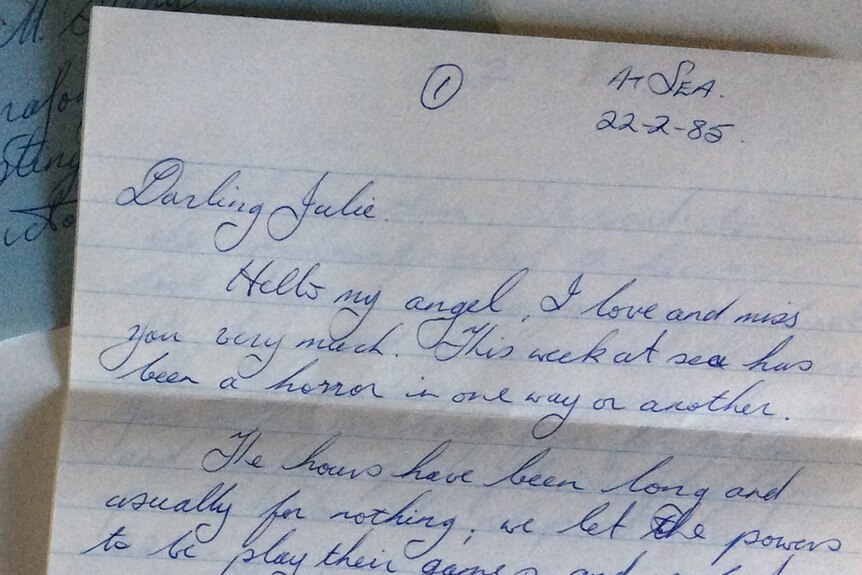 ①
At SEA.
22-2-85.
Darling Julie.
Hello my angel, I love and miss
you very much. This week at sea has
been a horror in one way or another.
The hours have been long and
usually for nothing, we let the powers
to be play their games and
M.